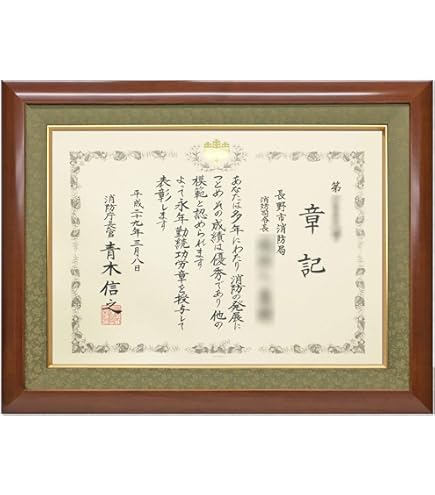 第
章記
長野市消防局
消防司令長
あなたは多年にわたり消防の発展に
つとめその成績は優秀であり他の
模範と認められます
よって永年勤続功労章を授与して
表彰します
平成二十九年三月八日
消防庁長官 青木信之